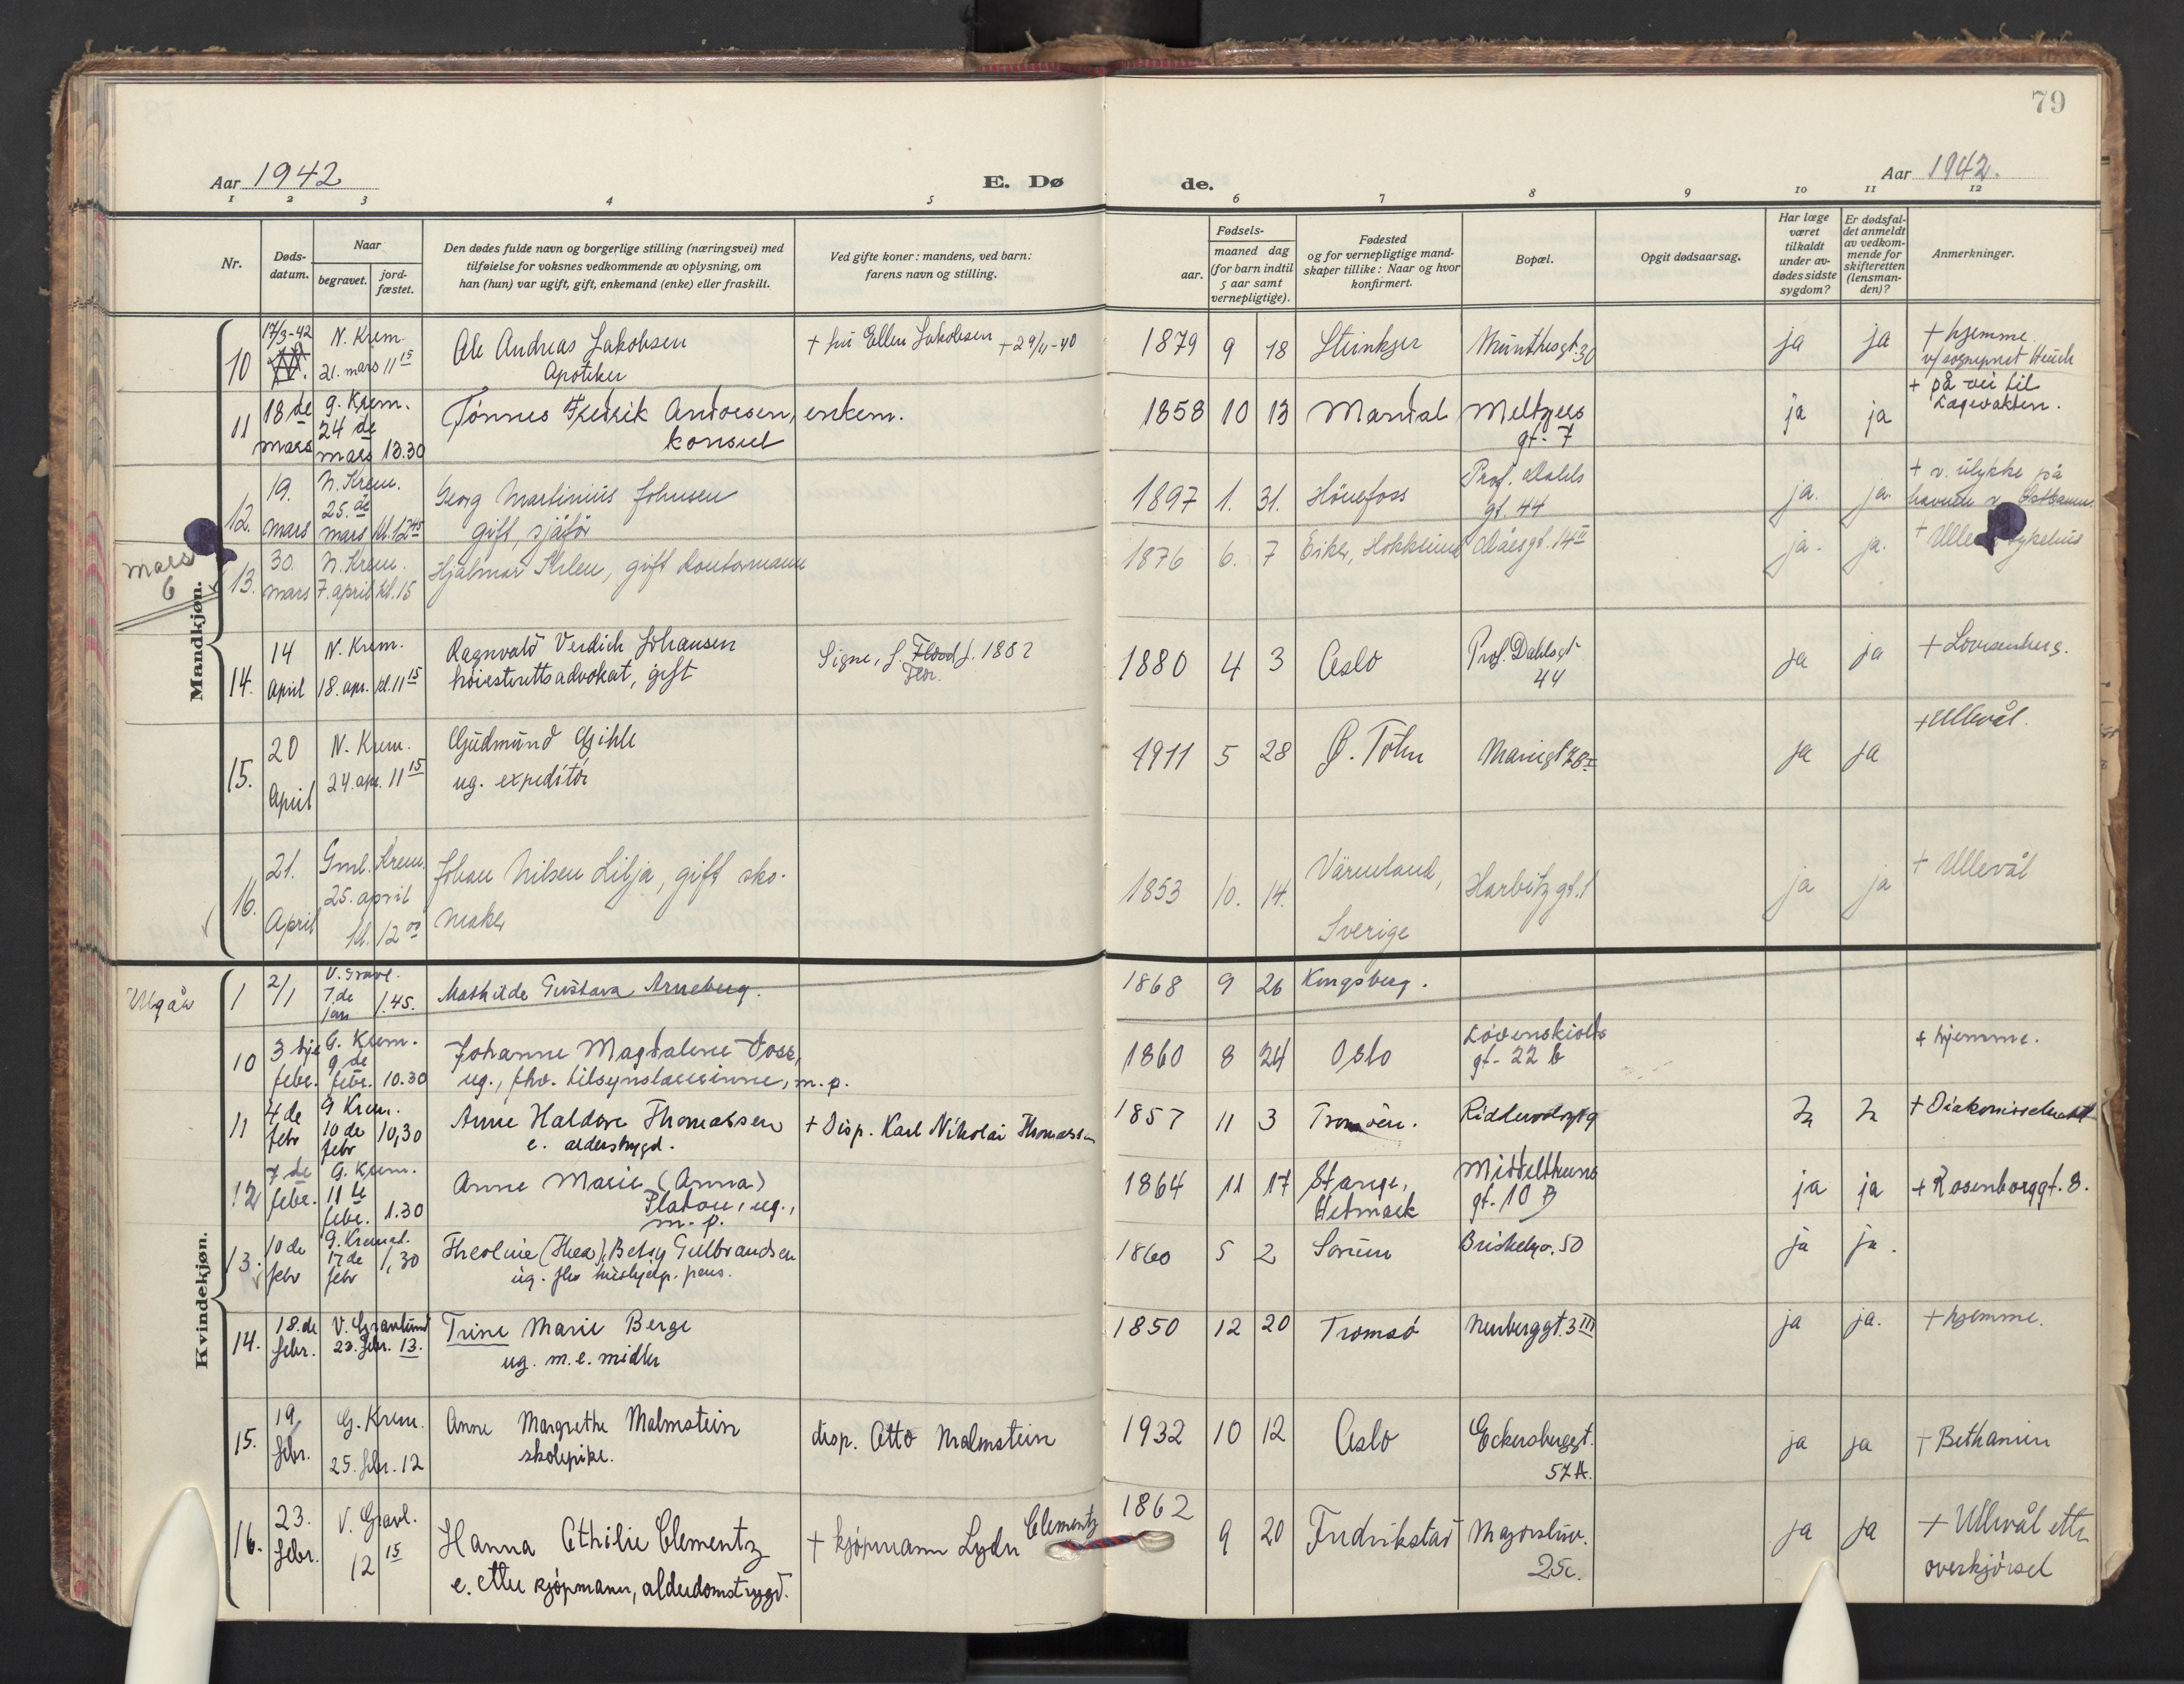 79
Aar 1942
E. Dø
de.
Aar 1942.
1 2 3 4 5 6 7 8 9 10 11 12
Nr.
Døds-
datum.
Naar
begravet.
jord-
fæstet.
Den dødes fulde navn og borgerlige stilling (næringsvei) med
tilføielse for voksnes vedkommende av oplysning, om
han (hun) var ugift, gift, enkemand (enke) eller fraskilt.
Ved gifte koner: mandens, ved barn:
farens navn og stilling.
Fødsels-
aar.
maaned dag
(for barn indtil
5 aar samt
vernepligtige).
Fødested
og for vernepligtige mand-
skaper tillike: Naar og hvor
konfirmert.
Bopæl.
Opgit dødsaarsag.
Har læge
været
tilkaldt
under av-
dødes sidste
sygdom?
Er dødsfal-
det anmeldt
av vedkom-
mende for
skifteretten
(lensman-
den)?
Anmerkninger.
Mandkjøn.
10
17/3-42
N. Krem.
21. mars 11 15
Ole Andreas Jakobsen
Apoteker
+ fru Ellen Jakobsen + 29/11-40
1879 9 18 Steinkjer Munthesgt. 30 ja ja
+ hjemme
v/ sogneprest Heuch
11
18 de
mars
G. Krem.
24 de
mars 13.30
Tønnes Fredrik Andorsen, enkem.
konsul
1858 10 13 Mandal Meltzers
gt. 7
ja ja
+ på vei til
Lægevakten.
12.
19.
mars
N. Krem.
25. de
mars kl. 12 45
Georg Martinius Johnsen
gift, sjåfør
1897 1. 31. Hønefoss Prof. Dahls
gt. 44
ja. ja.
+ v. ulykke på
havnen v.
mars
6
13.
30.
mars
N. Krem.
7. april kl. 15
Hjalmar gift kontormann
1876 6. 7 Eiker, Hokksund Odinsgt. 14 II ja. ja.
+ Ullevål sykehus
14.
14
April
N. Krem.
18. apr. kl. 11 15
Ragnvald Verdich Johansen
høiesterettsadvokat, gift
Signe, f. Flood f. 1882
Flor.
1880 4 3 Oslo Prof. Dahlsgt
44
ja ja + Lovisenberg.
15.
20
April
N. Krem.
24. apr. 11 15
Gudmund Gihle
ug. expeditør
1911 5 28 Ø. Toten ja ja + Ullevål.
16.
21.
April
Gml. Krem.
25. april
kl. 12 00
Johan Nilsen Lilja, gift sko-
maker
1853 10. 14. Värmland,
Sverige
Harbitzgt. 1 ja ja + Ullevål
Kvindekjøn.
Utgår
1
2/1
V. Gravl.
7. de
jan 1.45.
Mathilde Gustava Arneberg.
1868 9 26 Kongsberg.
10
3 dje
febr.
G. Krem.
9 de
febr. 10.30
Johanne Magdalene Voss,
ug., fhv. tilsynslærerinne, m.p.
1860 8 24 Oslo Løvenskiolds
gt. 22 b
+ hjemme.
11
4 de
febr
G Krem.
10 de
febr 10,30
Anne Haldore Thomassen
e. alderstrygd.
+ Disp. Karl Nikolai Thomassen
1857 11 3 Tromøen.
+ Diakonissehuset
12
7 de
febr.
G. Krem.
11 te
febr. 1.30
Anne Marie (Anna)
Platou, ug.,
m. p.
1864 11 17 Stange,
Hedmark
Middelthuns
gt. 10 B
ja ja + Rosenborggt. 8.
13.
10 de
febr
G. Kremat.
17 de
febr 1,30
Theoline (Thea) Betsy Gulbrandsen
ug. fhv hushjelp. pens.
1860 5 2 Sørum Briskebyv. 50 ja ja.
14.
18. de
febr.
V. Gravlund
23. febr. 13.
Trine Marie Berge
ug. m. e. midler
1850 12 20 Tromsø Neuberggt. 3 III ja ja. + hjemme.
15.
19
febr.
G. Krem.
25. febr. 12
Anne Margrethe Malmstein
skolepike.
disp. Otto Malmstein
1932 10 12 Oslo Eckersberggt.
57 A.
ja ja + Bethanien
16.
23.
febr.
V. Gravl.
12 15
Hanna Othilie Clementz
e. etter kjøpmann, alderdomstrygd.
+ kjøpmann Clementz
1862 9 20 Fredrikstad Majorstuv.
25c.
ja ja
+ Ullevål etter
overkjørsel